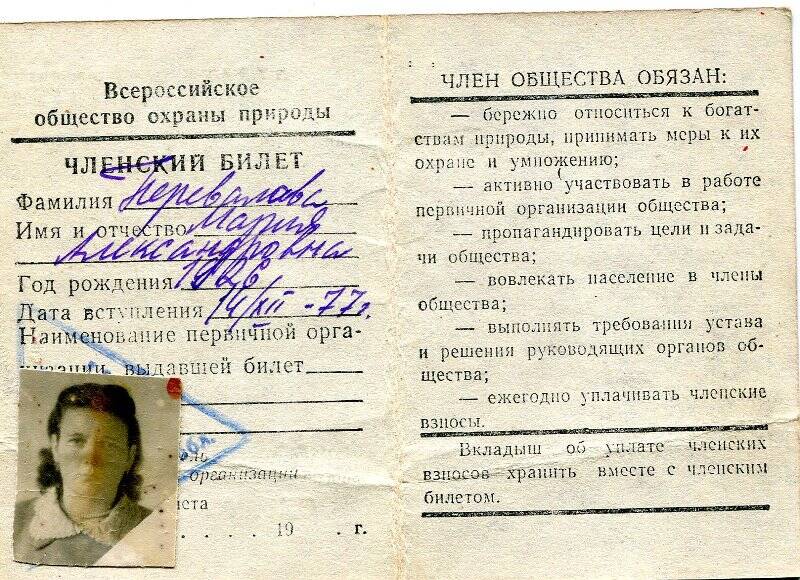 Всероссийское
общество охраны природы
ЧЛЕНСКИЙ БИЛЕТ
Фамилия Перевалова
Имя и отчество Мария
Александровна
Год рождения 1926
Дата вступления 14/XII-77г.
Наименование первичной орга-
низации, выдавшей билет
организации
19 . г.
ЧЛЕН ОБЩЕСТВА ОБЯЗАН:
— бережно относиться к богат-
ствам природы, принимать меры к их
охране и умножению;
— активно участвовать в работе
первичной организации общества;
— пропагандировать цели и зада-
чи общества;
— вовлекать население в члены
общества;
— выполнять требования устава
и решения руководящих органов об-
щества;
— ежегодно уплачивать членские
взносы.
Вкладыш об уплате членских
взносов хранить вместе с членским
билетом.